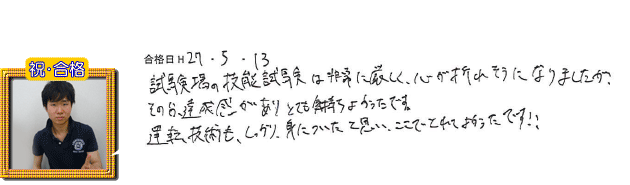 祝・合格
合格日 H 27・5・13
試験場の技能試験は非常に厳しく、心が折れそうになりましたが、
その分、達成感がありとても気持ちよかったです。
運転技術も、しっかり、身についたと思い、ここでとれてよかったです!!